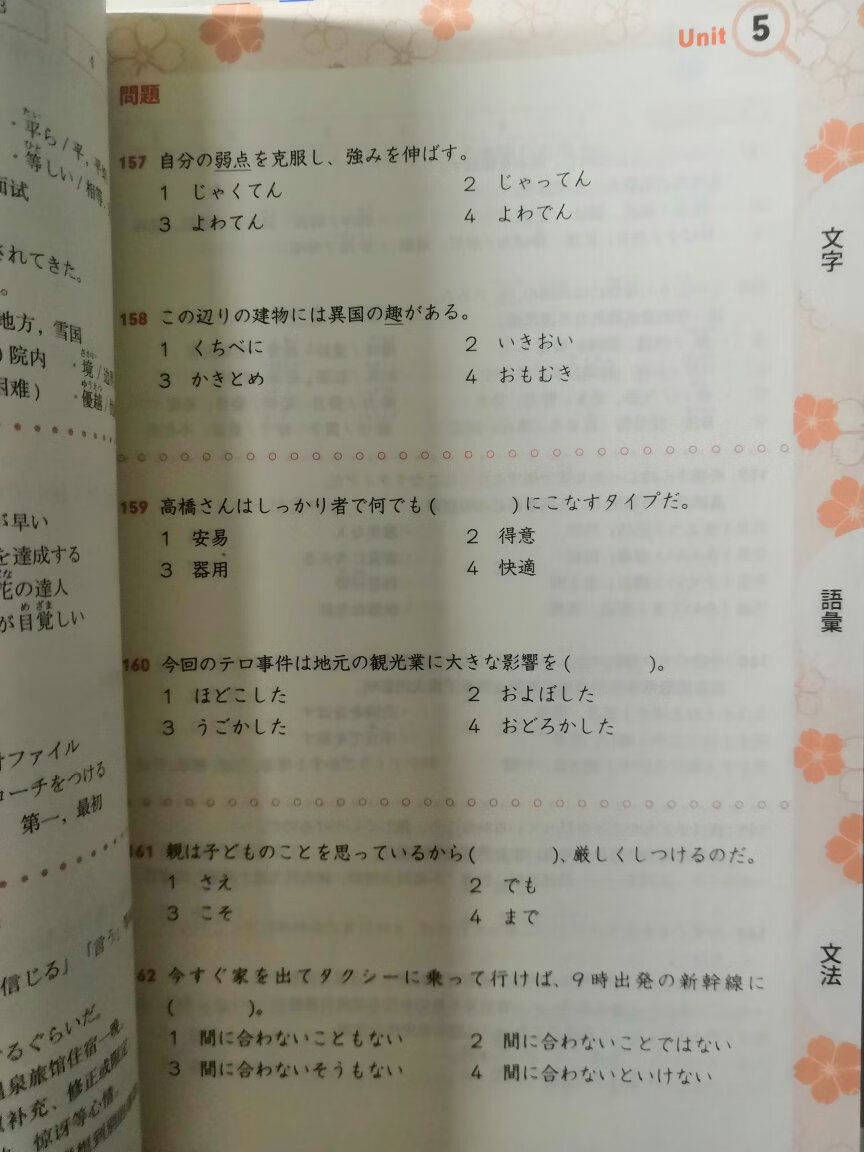 ・平ら/平,
たい
・等しい/相等
ひと
面试
されてきた。
。
地方，雪国
院内
・境/
さかい
困难）
・優越/
ゆうえつ
が早い
を達成する
花の達人
が目覚しい
めざま
ファイル
ローチをつける
第一，最初
信じる」「言う」
するぐらいだ
温泉旅馆住宿一晚
补充、修正或限定
惊讶等心情。
Unit 5
問題
157 自分の弱点を克服し、強みを伸ばす。
1 じゃくてん
2 じゃってん
3 よわてん
4 よわでん
158 この辺りの建物には異国の趣がある。
1 くちべに
2 いきおい
3 かきとめ
4 おもむき
159 高橋さんはしっかり者で何でも(　　　)にこなすタイプだ。
1 安易
2 得意
3 器用
4 快適
160 今回のテロ事件は地元の観光業に大きな影響を(　　　)。
1 ほどこした
2 およぼした
3 うごかした
4 おどろかした
161 親は子どものことを思っているから(　　　)、厳しくしつけるのだ。
1 さえ
2 でも
3 こそ
4 まで
62 今すぐ家を出てタクシーに乗って行けば、9時出発の新幹線に
(　　　)。
1 間に合わないこともない
2 間に合わないことではない
3 間に合わないそうもない
4 間に合わないといけない
文字
語彙
文法